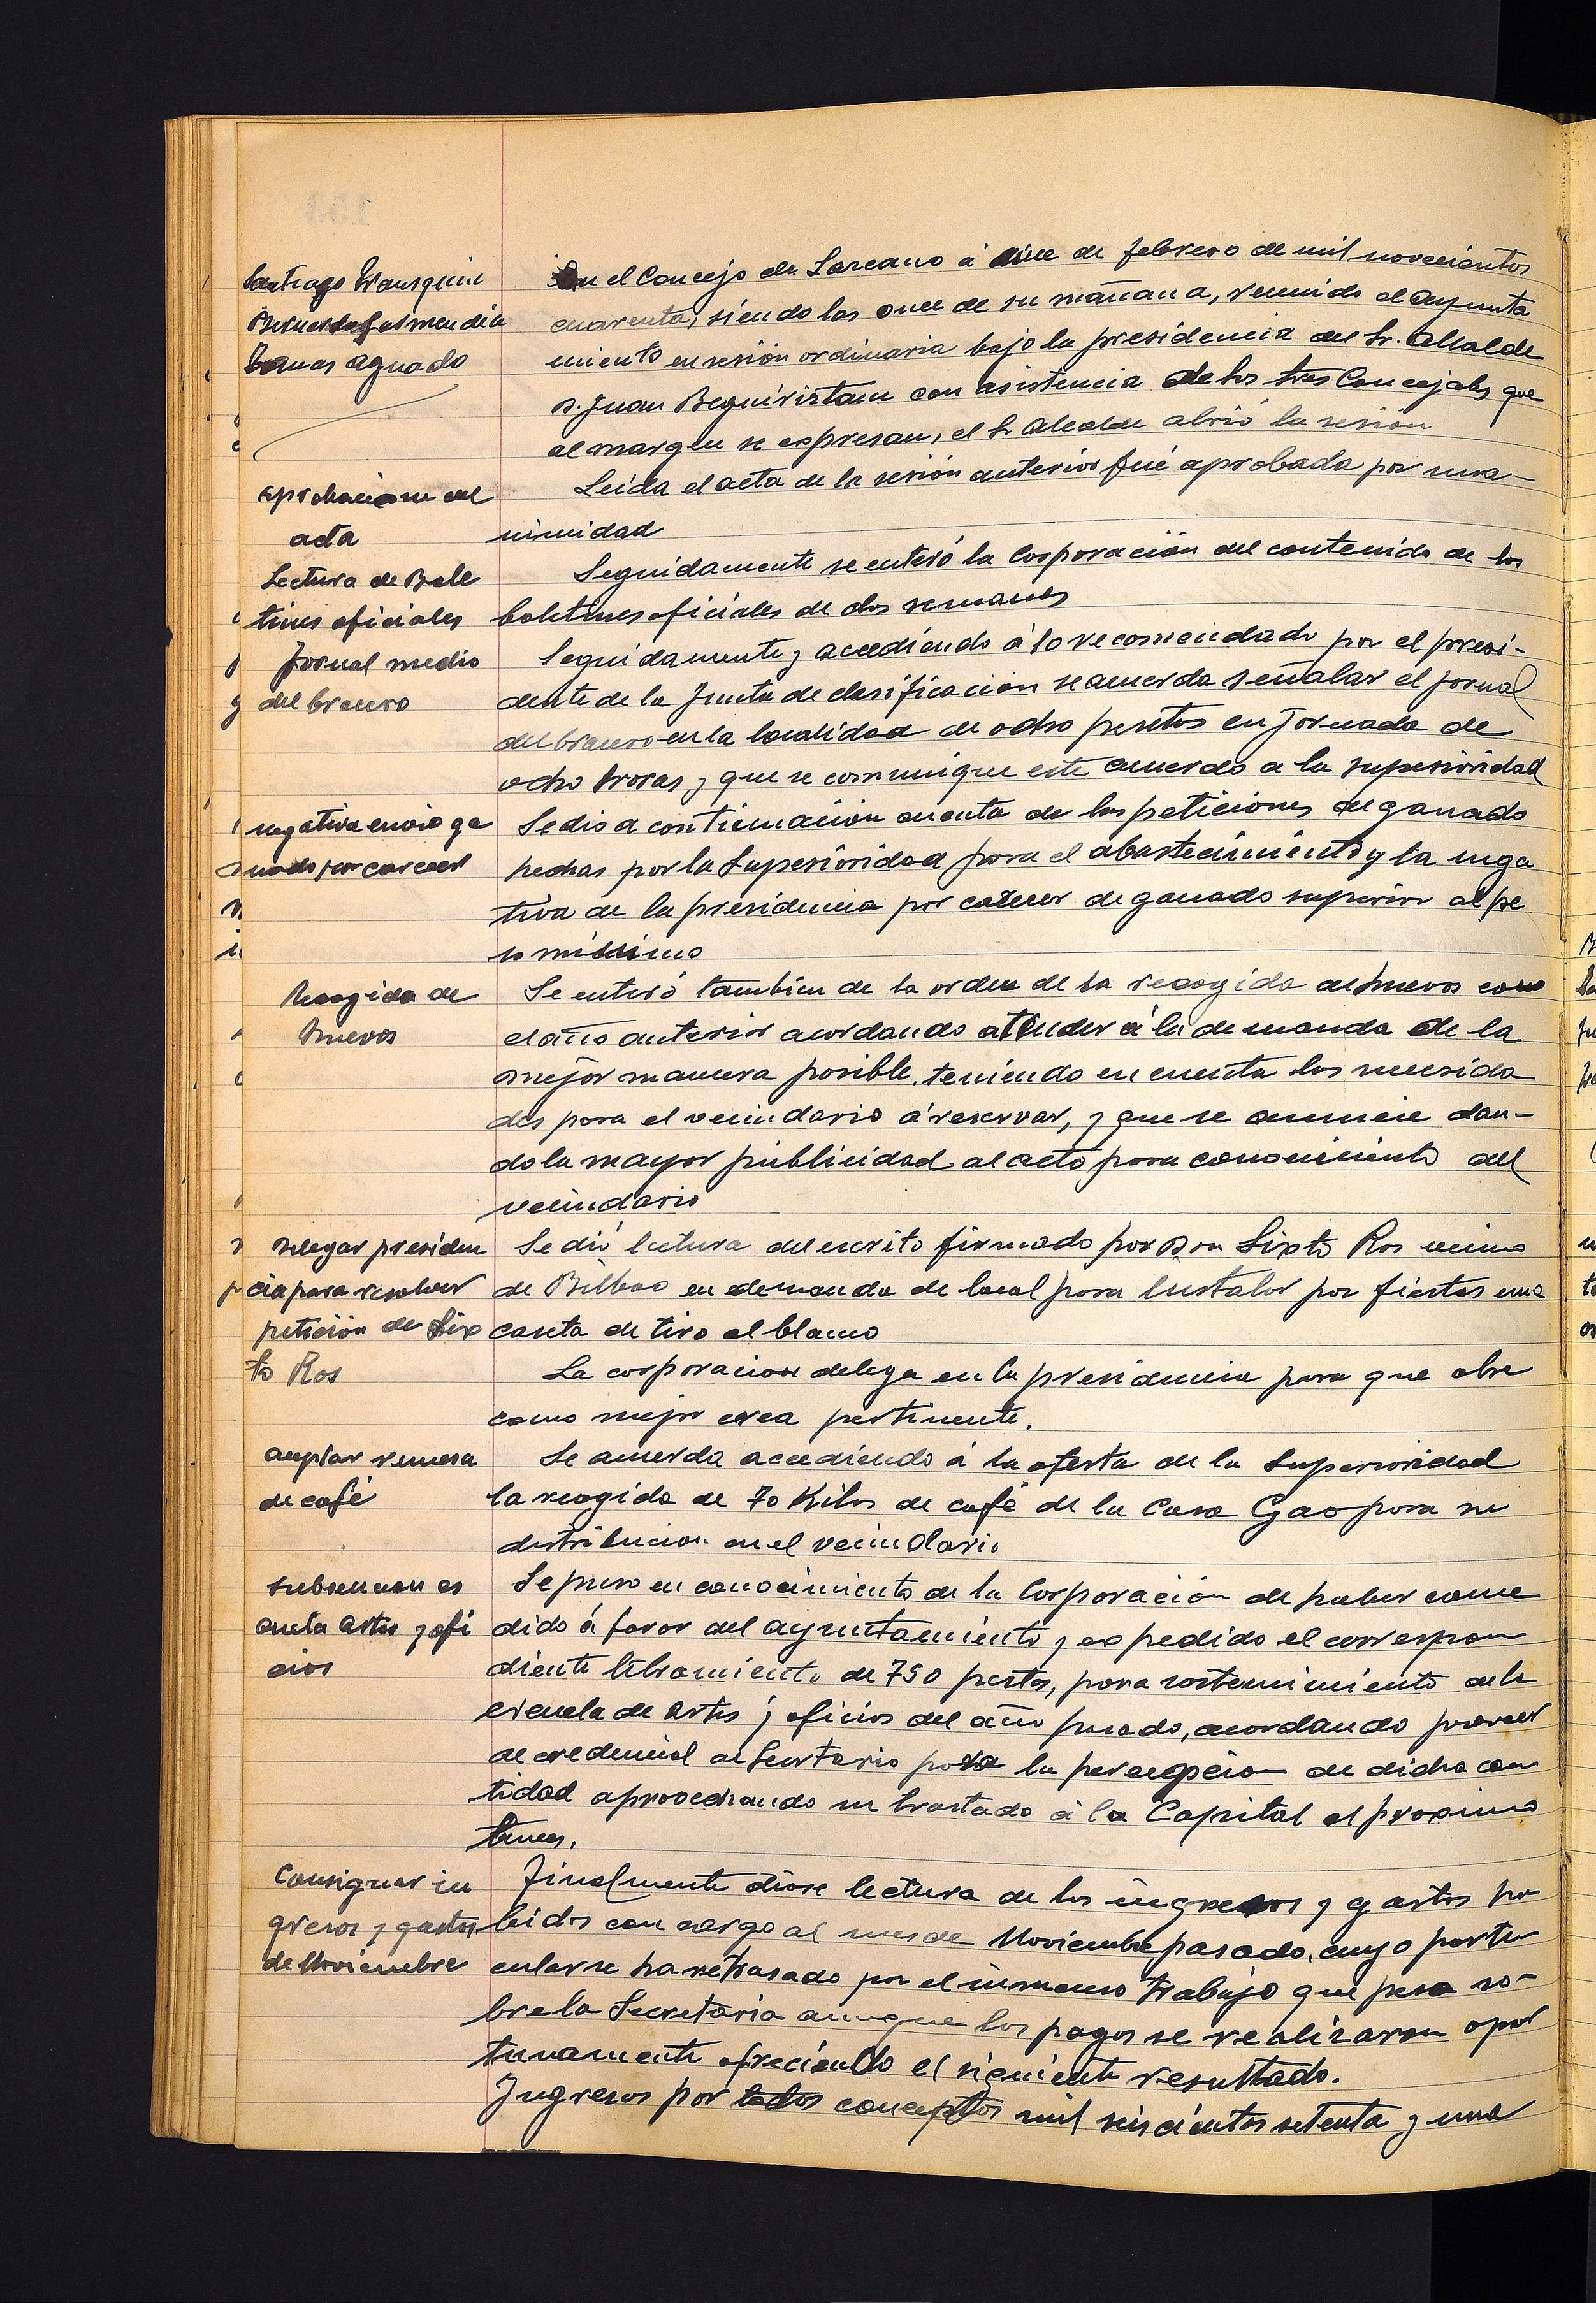 Santiago
Bernardo Garmendia
Tomas Aguado
En el Concejo de Lazcano á de febrero de mil novecientos
cuarenta, siendo las once de su mañana, reunido el Ayunta
miento en sesión ordinaria bajo la presidencia del Sr. Alcalde
D. Juan Beguiristain con asistencia de los tres Concejales que
al margen se expresan, el Sr Alcalde abrió la sesión
aprobacion del
acta
Leida el acta de la sesión anterior fué aprobada por una-
nimidad
Lectura de Bole
tines oficiales
Seguidamente se enteró la Corporación del contenido de los
boletines oficiales de dos semanas
Jornal medio
del bracero
Seguidamente y accediendo á lo recomendado por el presi-
dente de la Junta de clasificación se acuerda señalar el jornal
del bracero en la localidad de ocho pesetas en jornada de
ocho horas, y que se comunique este acuerdo a la superioridad
negativa envio ga
nado por carecer
Se dio a continuación cuenta de las peticiones de ganado
hechas por la Superioridad para el abastecimiento y la nega
tiva de la presidencia por carecer de ganado superior al pe
so mínimo
Recogida de
huevos
Se enteró tambien de la orden de la recogida de huevos como
el año anterior acordando atender á la demanda de la
mejor manera posible, teniendo en cuenta las necesida
des para el vecindario á reservar, y que se anuncie dan-
do la mayor publicidad al acto para conocimiento del
vecindario
Delegar presiden
cia para resolver
petición de Six
to Ros
Se dió lectura del escrito firmado por Don Sixto Ros vecino
de Bilbao en demanda de local para instalar por fiestas una
caseta de tiro al blanco
La corporacion delega en la presidencia para que obre
como mejor crea pertinente.
aceptar remesa
de café
Se acuerda accediendo á la oferta de la Superioridad
la recogida de 70 Kilos de café de la Casa Gao para su
distribucion en el vecindario
subvencion es
cuela artes y ofi
cios
Se puso en conocimiento de la Corporación de haber conce
dido á favor del ayuntamiento y expedido el correspon
diente libramiento de 750 pesetas, para sostenimiento de la
escuela de artes y oficios del año pasado, acordando proveer
de credencial al Secretario para la percepcion de dicha can
tidad aprovechando su traslado á la Capital el proximo
lunes.
Consignar in
gresos y gastos
de Noviembre
Finalmente diose lectura de los ingresos y gastos ha
bidos con cargo al mes de Noviembre pasado, cuyo parti
cular se ha retrasado por el inmenso trabajo que pesa so-
bre la Secretaria aunque los pagos se realizaron opor
tunamente ofreciendo el siguiente resultado.
Ingresos por todos conceptos mil seiscientos setenta y una